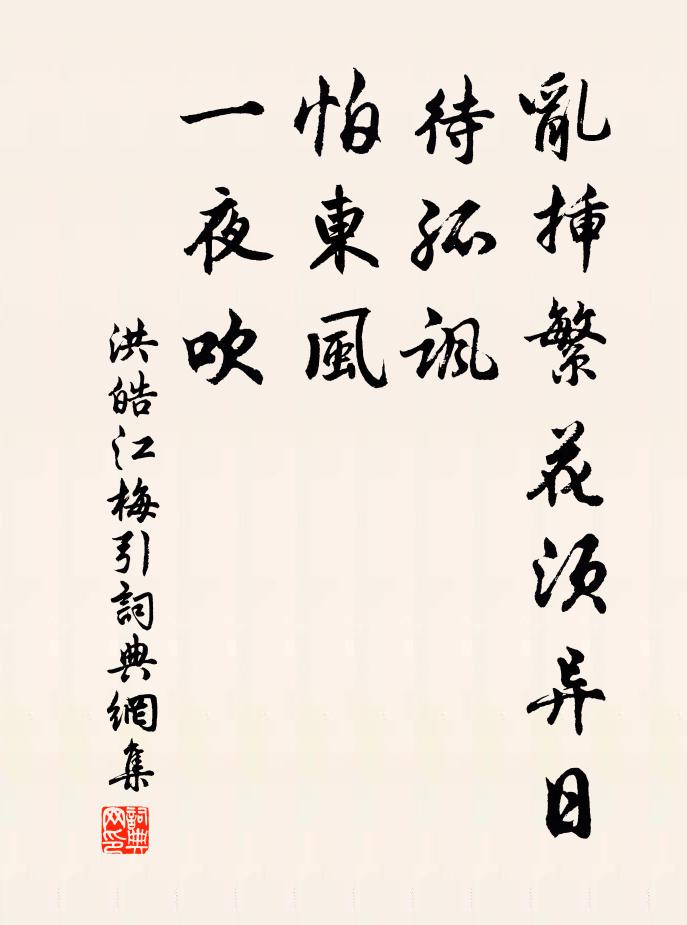 亂挿繁花須异日
待孤諷
怕東風
一夜吹
洪皓江梅引詞典網集
詞典網印